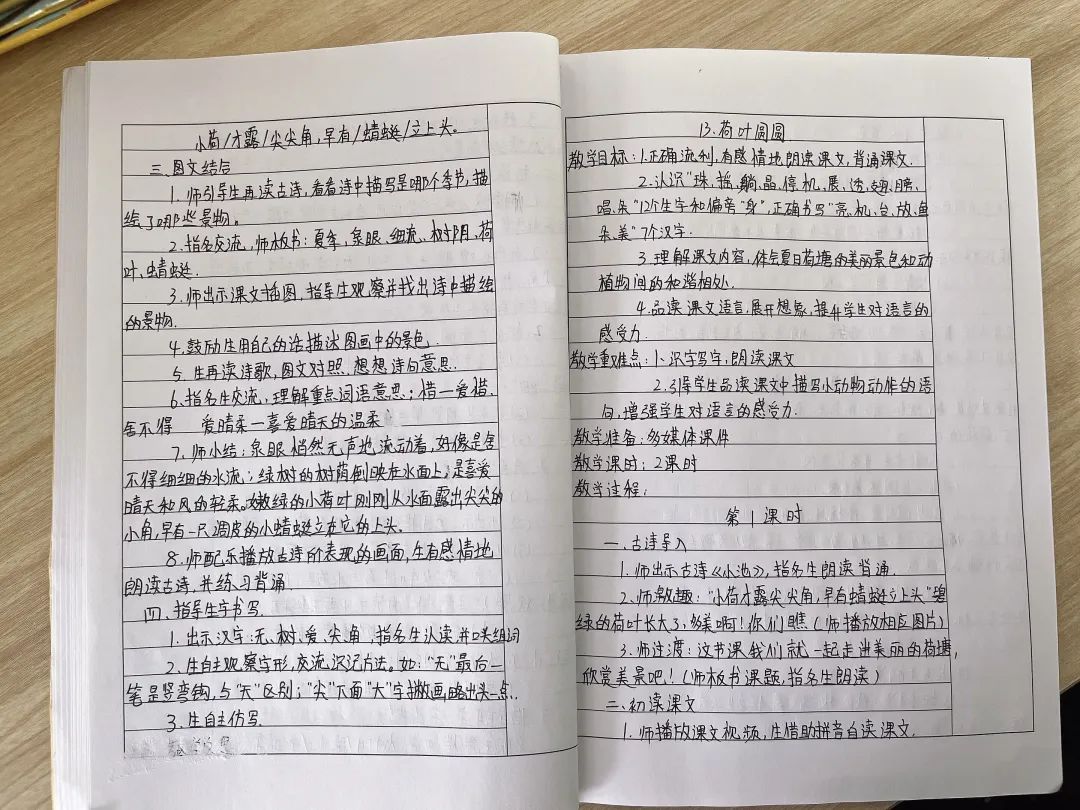 小荷/才露/尖尖角,早有/蜻蜓/立上头。
三.图文结合
1.师引导生再读古诗,看看诗中描写是哪个季节,描
绘了哪些景物。
2.指名交流,师板书:夏季,泉眼,细流,树阴,荷
叶,蜻蜓.
3.师出示课文插图,指导生观察并找出诗中描绘
的景物.
4.鼓励生用自己的话描述图画中的景色.
5.生再读诗歌,图文对照.想想诗句意思.
6.指名生交流,理解重点词语意思;惜一爱惜.
舍不得 爱晴柔一喜爱晴天的温柔
7.师小结:泉眼悄然无声地流动着,好像是舍
不得细细的水流,;绿树的树荫倒映在水面上,是喜爱
晴天和风的轻柔.嫩绿的小荷叶刚刚从水面露出尖尖的
小角,早有一只调皮的小蜻蜓立在它的上头。
8.师配乐播放古诗所表现的画面,生有感情地
朗读古诗,并练习背诵.
四.指导生字书写.
1.出示汉字:无、树、爱、尖、角.指名生认读,并口头组词
2.生自主观察字形,交流识记方法。如:"无"最后一
笔是竖弯钩,与"天"区别;"尖"下面"大"字撇画略出头一点.
3.生自主仿写.
13.荷叶圆圆
教学目标:1.正确流利,有感情地朗读课文,背诵课文.
2.认识"珠、摇、躺、晶、停、机、展、透、翅、膀、
唱、朵"12个生字和偏旁"身",正确书写"亮、机、台、放、鱼
朵、美"7个汉字.
3.理解课文内容,体会夏日荷塘的美丽景色和动
植物间的和谐相处.
4.品读课文语言,展开想象,提升学生对语言的
感受力.
教学重难点:1.识字写字,朗读课文
2.引导学生品读课文中描写小动物动作的语
句,增强学生对语言的感受力.
教学准备:多媒体课件
教学课时:2课时
教学过程:
第1课时
一.古诗导入
1.师出示古诗《小池》,指名生朗读背诵.
2.师激趣:"小荷才露尖尖角,早有蜻蜓立上头"碧
绿的荷叶长大了,多美啊!你们瞧(师播放相应图片)
3.师过渡:这节课我们就一起走进美丽的荷塘,
欣赏美景吧!(师板书课题,指名生朗读)
二.初读课文
1.师播放课文视频,生借助拼音自读课文.